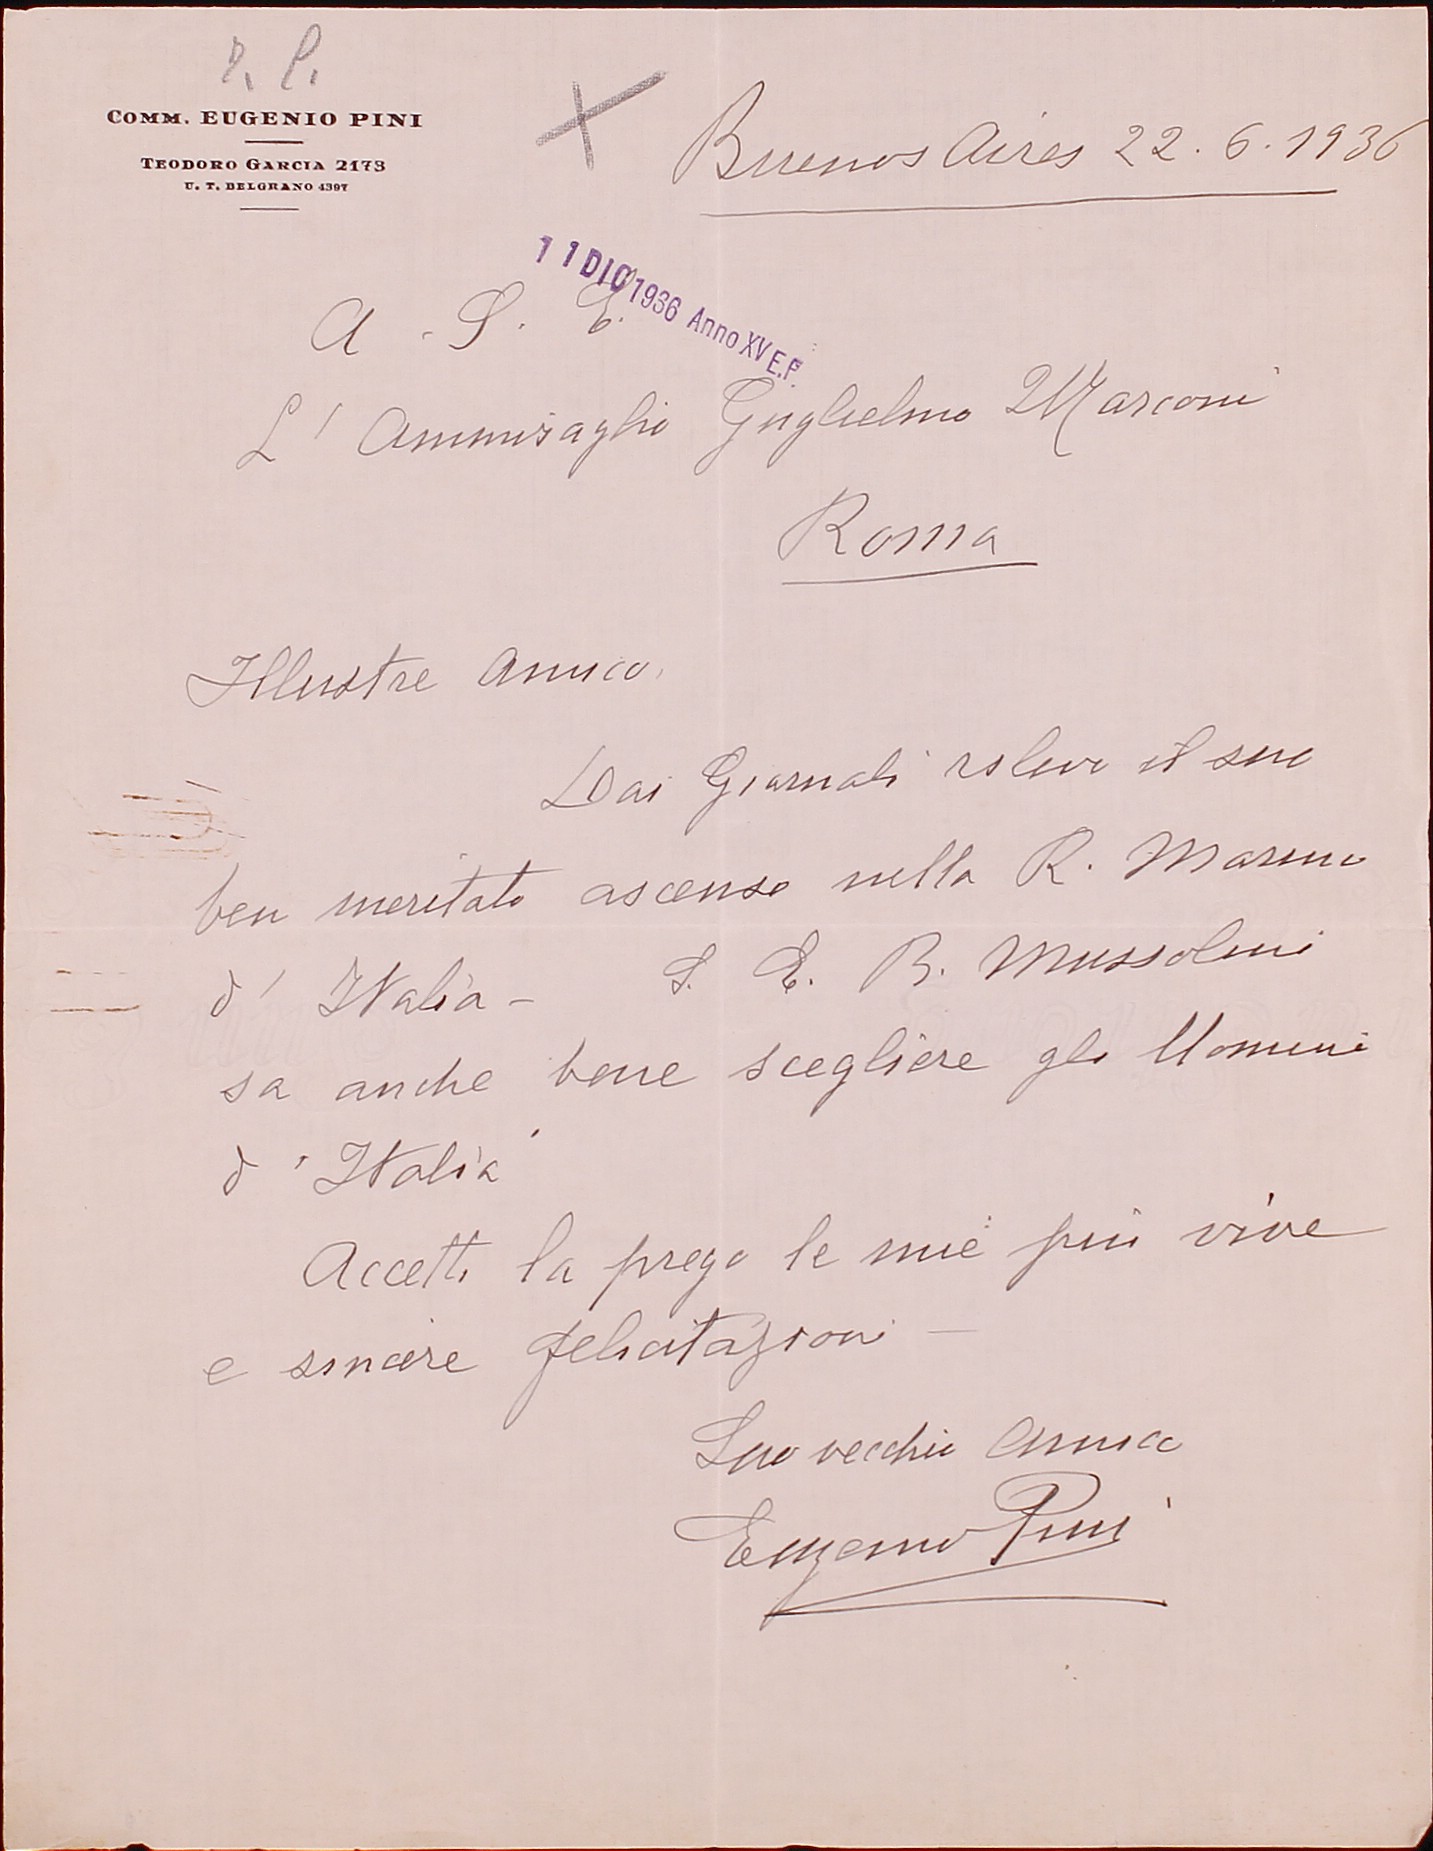 COMM. EUGENIO PINI
TEODORO GARCIA 2173
U. T. BELGRANO 4397
Buenos Aires 22.6.1936
11 DIC 1936 Anno XV E.F.
A. S. E.
L'Ammiraglio Guglielmo Marconi
Roma
Illustre amico,
Dai Giornali rilevo il suo
ben meritato ascenso nella R. Marina
d'Italia - S. E. B. Mussolini
sa anche bene scegliere gli Uomini
d'Italia
Accetti la prego le mie più vive
e sincere felicitazioni -
Suo vecchio amico
Eugenio Pini